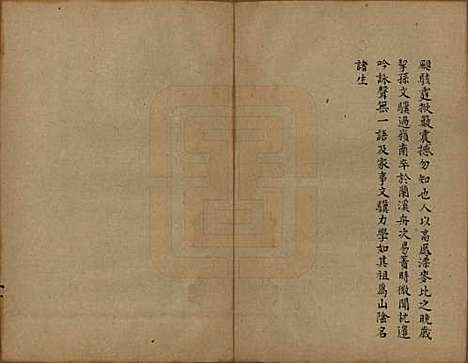 飈駭霆掀嚴震撼勿知也人以高鳳漂麥比之晚歲
挈孫文驥過嶺南卒於蘭溪舟次易簀時微聞枕邊
吟詠聲無一語及家事文驥力學如其祖爲山陰名
諸生